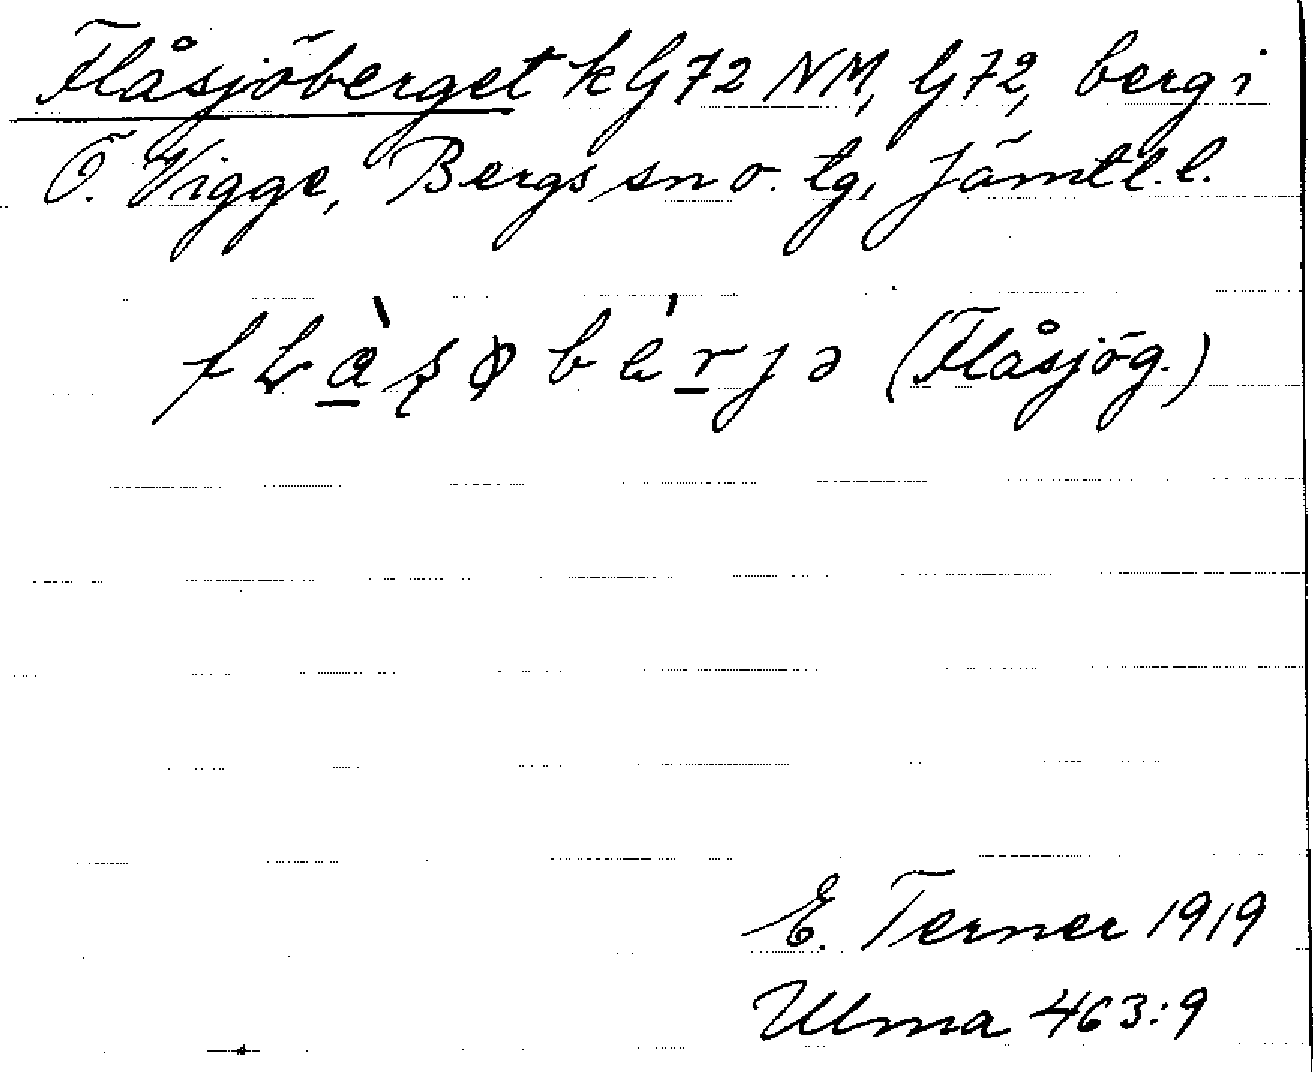 Flåsjöberget k G72 NM, G72, berg i
Ö. Vigge, Bergs sn o. tg, Jämtl. l.
fʟà̠ʂøbǽr̠jə (Flåsjög.)
E. Terner 1919
Ulma 463:9